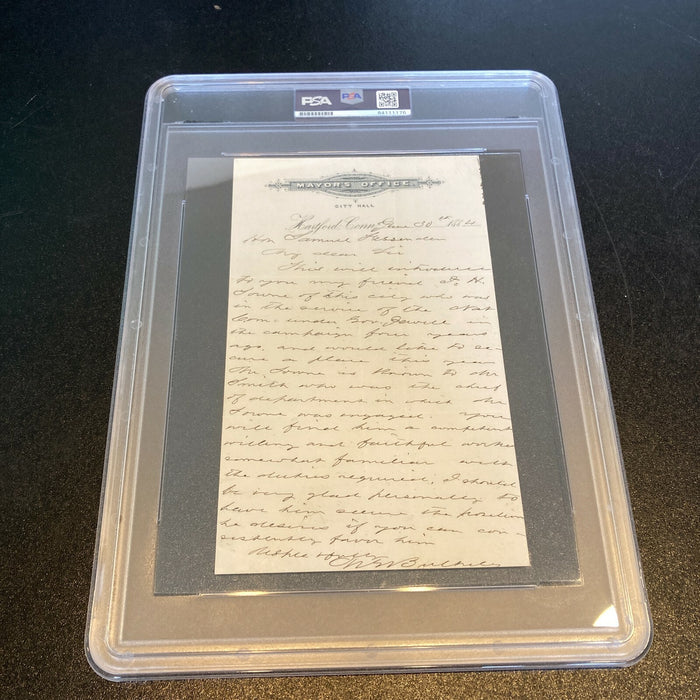 PSA PSA
84111176
MAYOR'S OFFICE
CITY HALL
Hartford, Conn. June 30th 1884
Hon Samuel Fessenden
My dear Sir
This will introduce
to you my friend H.
Towne of this city who was
in the service of the Nat
Com. under Gov Jewell in
the campaign four years
ago and would like to se-
cure a place this year
Mr. Towne is known to Mr
Smith who was the chief
of department in which Mr
Towne was engaged. You
will find him a competent
willing and faithful worker
somewhat familiar with
the duties required. I should
be very glad personally to
have him secure the position
he desires if you can con-
sistently favor him
Respectfully
M G Bulkeley